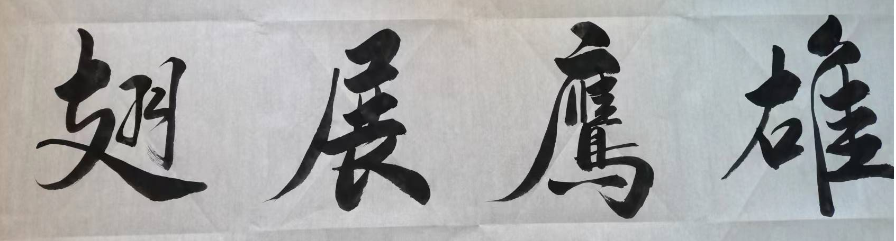 雄鹰展翅